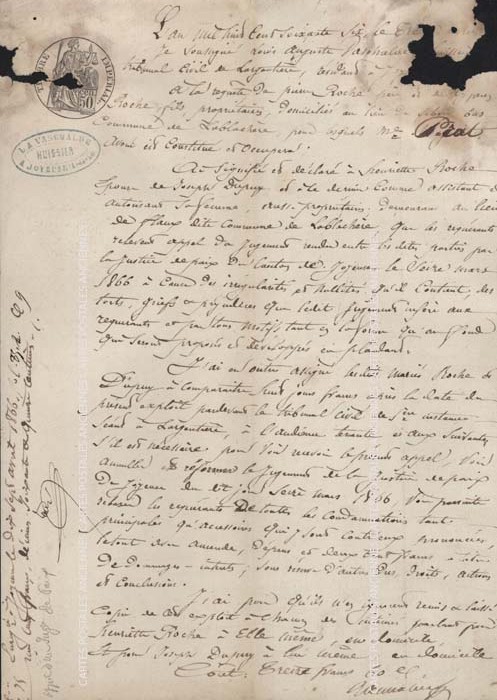 L'an mil huit Cent Soixante Six le
je soussigné Louis Auguste
tribunal Civil de Largentière, résidant à
A la requête de pierre Roche père et de pierre
Roche fils propriétaires, domiciliés au lieu
Commune de Lablachère pour lesquels Me Pical
avoué est Constitué et occupera.
Ai Signifié et déclaré à henriette Roche
épouse de Joseph Dupuy et à ce dernier comme assistant et
autorisant sa femme, aussi propriétaires demeurant au lieu
de flaux dite Commune de Lablachère, que les requérants
relèvent appel du jugement rendu entre les dites parties par
la Justice de paix du Canton de Joyeuse le Seize mars
1866 à Cause des irrégularités et nullités qu'il Contient, des
torts, griefs et préjudices que ledit jugement infère aux
requérants et par tous motifs tant en la forme qu'au fond
qui seront proposés et développés en plaidant.
J'ai en outre assigné lesdits mariés Roche et
Dupuy à Comparaître huit jours francs après la date du
présent exploit pardevant le tribunal Civil de 1re instance
Séant à Largentière, à l'audience tenante et aux Suivantes
s'il est nécessaire, pour Voir recevoir le présent appel, Voir
annuller et réformer le jugement de la Justice de paix
de Joyeuse du dit jour Seize mars 1866, Voir par suite
relaxer les requérants de toutes les Condamnations tant
principales qu'accessoires qui y sont contre eux prononcées
restitution amende, Dépens et deux cent francs à titre
de Dommages-intérêts; sous réserve d'autres Dus, Droits, actions
et Conclusions.
J'ai pour qu'ils n'en ignorent remis et laissé
Copie de cet exploit à Chacun des Cités, parlant pour
henriette Roche à Elle même, en domicile
Et pour Joseph Dupuy à lui même en domicile
Cout: Treize francs 60 c.
TIMBRE IMPERIAL
50
LAPASCHALDE
HUISSIER
A JOYEUSE
avril 1866